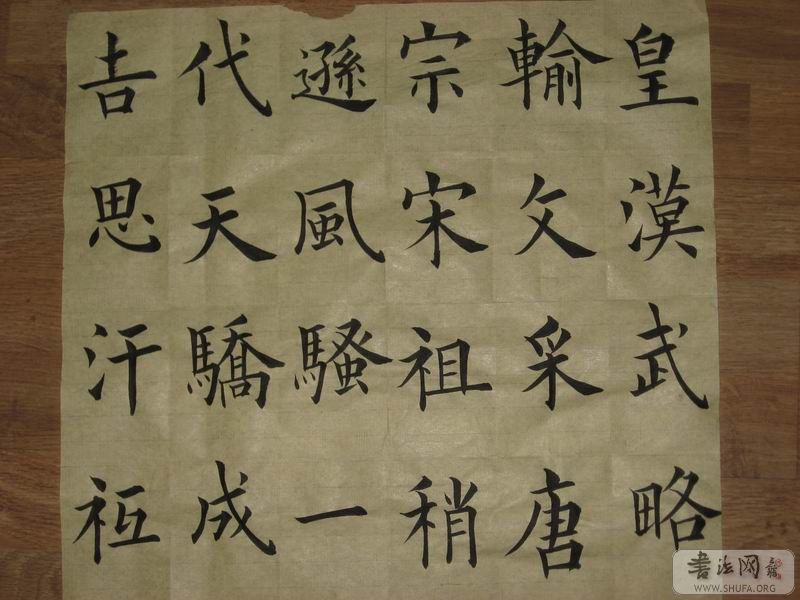 皇漠武略
輸文采唐
宗宋祖稍
遜風騷一
代天驕成
吉思汗祗
書法网
WWW.SHUFA.ORG